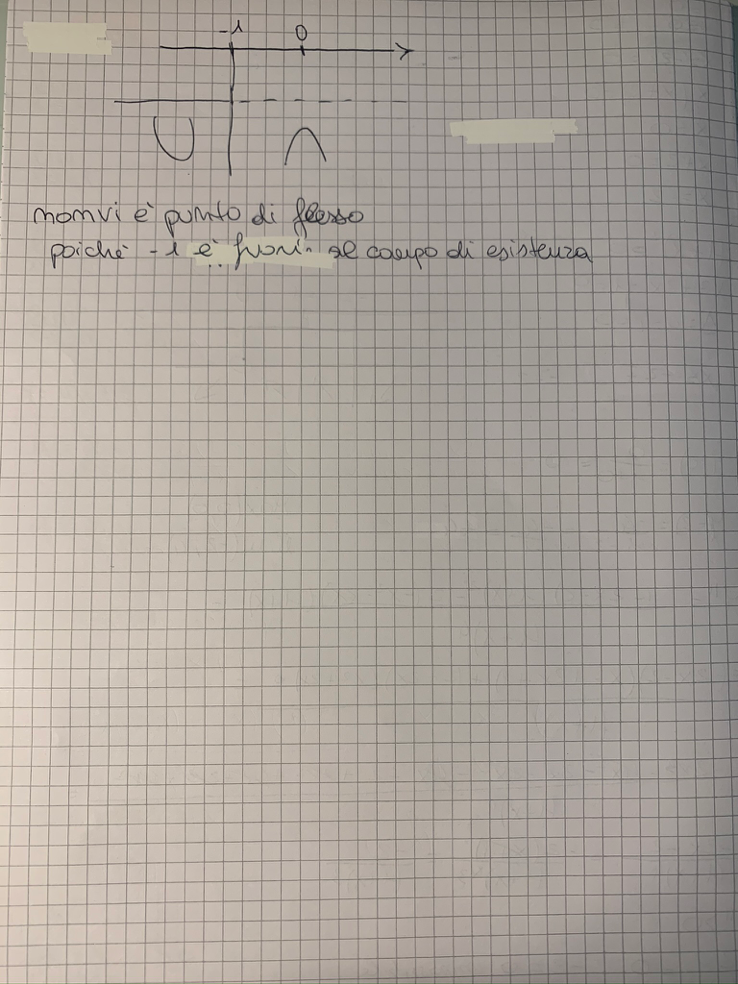 -1 0
nonvi è punto di flesso
poiché -1 è fuori al campo di esistenza